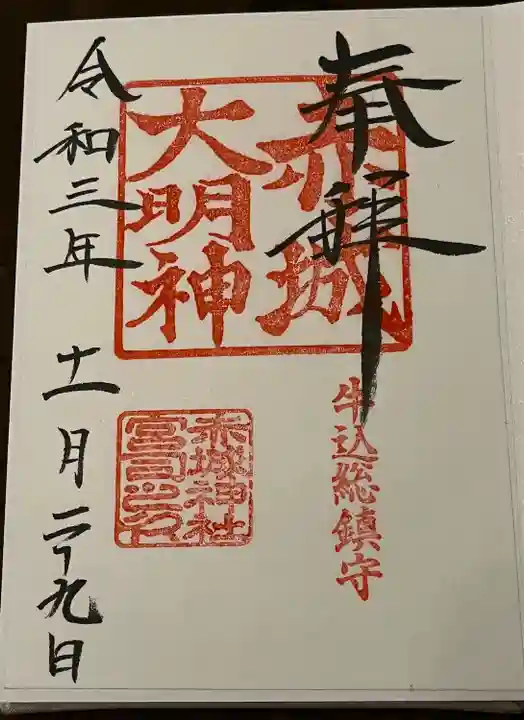 奉拝
赤城
大明神
牛込総鎮守
赤城神社
宮司之印
令和三年 十一月二十九日